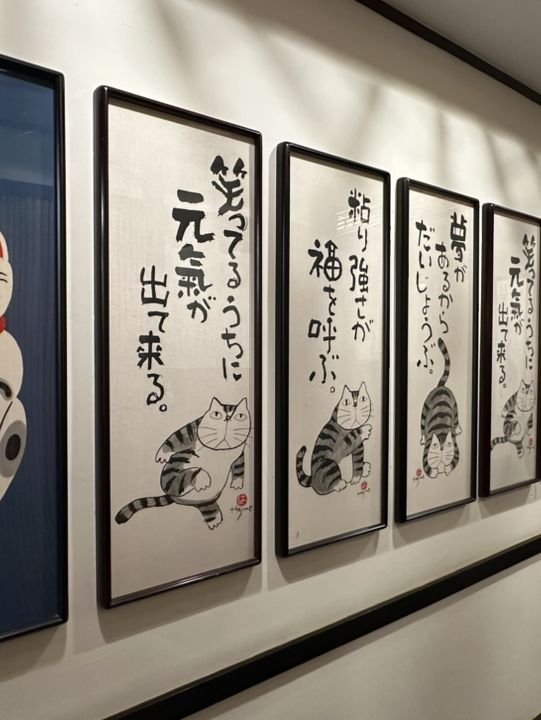 笑ってるうちに
元氣が
出て来る。
粘り強さが
福を呼ぶ。
夢が
あるから
だいじょうぶ。
笑ってるうちに
元氣が
出て来る。